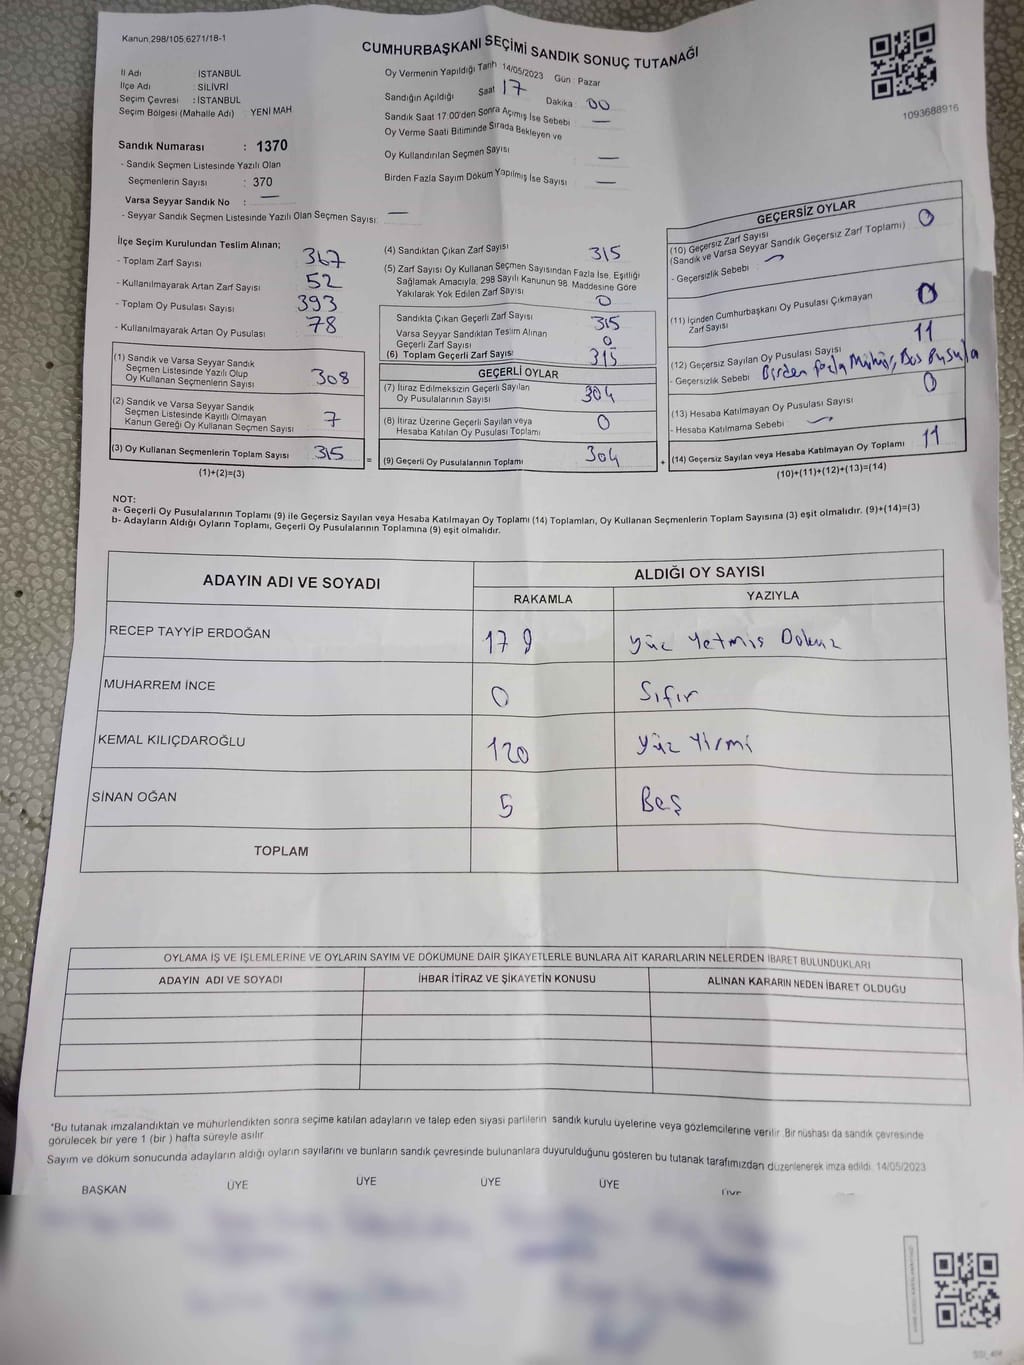 Kanun,298/105,6271/18-1
CUMHURBAŞKANI SEÇİMİ SANDIK SONUÇ TUTANAĞI
1093688916
İl Adı : İSTANBUL
İlçe Adı : SİLİVRİ
Seçim Çevresi : İSTANBUL
Seçim Bölgesi (Mahalle Adı) YENİ MAH
Sandık Numarası : 1370
- Sandık Seçmen Listesinde Yazılı Olan
Seçmenlerin Sayısı : 370
Varsa Seyyar Sandık No : —
- Seyyar Sandık Seçmen Listesinde Yazılı Olan Seçmen Sayısı: —
Oy Vermenin Yapıldığı Tarih 14/05/2023 Gün : Pazar
Sandığın Açıldığı Saat 17 Dakika : 00
Sandık Saat 17:00'den Sonra Açımış İse Sebebi : —
Oy Verme Saati Bitiminde Sırada Bekleyen ve
Oy Kullandırılan Seçmen Sayısı —
Birden Fazla Sayım Döküm Yapılmış İse Sayısı : —
İlçe Seçim Kurulundan Teslim Alınan;
- Toplam Zarf Sayısı 367
- Kullanılmayarak Artan Zarf Sayısı 52
- Toplam Oy Pusulası Sayısı 393
- Kullanılmayarak Artan Oy Pusulası 78
(1) Sandık ve Varsa Seyyar Sandık
Seçmen Listesinde Yazılı Olup
Oy Kullanan Seçmenlerin Sayısı 308
(2) Sandık ve Varsa Seyyar Sandık
Seçmen Listesinde Kayıtlı Olmayan
Kanun Gereği Oy Kullanan Seçmen Sayısı 7
(3) Oy Kullanan Seçmenlerin Toplam Sayısı 315
(1)+(2)=(3)
(4) Sandıktan Çıkan Zarf Sayısı 315
(5) Zarf Sayısı Oy Kullanan Seçmen Sayısından Fazla İse, Eşitliği
Sağlamak Amacıyla, 298 Sayılı Kanunun 98. Maddesine Göre
Yakılarak Yok Edilen Zarf Sayısı 0
Sandıkta Çıkan Geçerli Zarf Sayısı 315
Varsa Seyyar Sandıktan Teslim Alınan
Geçerli Zarf Sayısı 0
(6) Toplam Geçerli Zarf Sayısı 315
GEÇERLİ OYLAR
(7) İtiraz Edilmeksizin Geçerli Sayılan
Oy Pusulalarının Sayısı 304
(8) İtiraz Üzerine Geçerli Sayılan veya
Hesaba Katılan Oy Pusulası Toplamı 0
= (9) Geçerli Oy Pusulalarının Toplamı 304
GEÇERSİZ OYLAR
(10) Geçersiz Zarf Sayısı 0
(Sandık ve Varsa Seyyar Sandık Geçersiz Zarf Toplamı)
- Geçersizlik Sebebi :
(11) İçinden Cumhurbaşkanı Oy Pusulası Çıkmayan
Zarf Sayısı 0
(12) Geçersiz Sayılan Oy Pusulası Sayısı 11
- Geçersizlik Sebebi Birden fazla Mühür, Boş Pusula
(13) Hesaba Katılmayan Oy Pusulası Sayısı 0
- Hesaba Katılmama Sebebi :
+ (14) Geçersiz Sayılan veya Hesaba Katılmayan Oy Toplamı 11
(10)+(11)+(12)+(13)=(14)
NOT:
a- Geçerli Oy Pusulalarının Toplamı (9) ile Geçersiz Sayılan veya Hesaba Katılmayan Oy Toplamı (14) Toplamları, Oy Kullanan Seçmenlerin Toplam Sayısına (3) eşit olmalıdır. (9)+(14)=(3)
b- Adayların Aldığı Oyların Toplamı, Geçerli Oy Pusulalarının Toplamına (9) eşit olmalıdır.
ADAYIN ADI VE SOYADI ALDIĞI OY SAYISI
RAKAMLA YAZIYLA
RECEP TAYYİP ERDOĞAN 179 Yüz Yetmiş Dokuz
MUHARREM İNCE 0 Sıfır
KEMAL KILIÇDAROĞLU 120 Yüz Yirmi
SİNAN OĞAN 5 Beş
TOPLAM
OYLAMA İŞ VE İŞLEMLERİNE VE OYLARIN SAYIM VE DÖKÜMÜNE DAİR ŞİKAYETLERLE BUNLARA AİT KARARLARIN NELERDEN İBARET BULUNDUKLARI
ADAYIN ADI VE SOYADI İHBAR İTİRAZ VE ŞİKAYETİN KONUSU ALINAN KARARIN NEDEN İBARET OLDUĞU
*Bu tutanak imzalandıktan ve mühürlendikten sonra seçime katılan adayların ve talep eden siyasi partilerin sandık kurulu üyelerine veya gözlemcilerine verilir. Bir nüshası da sandık çevresinde
görülecek bir yere 1 (bir ) hafta süreyle asılır.
Sayım ve döküm sonucunda adayların aldığı oyların sayılarını ve bunların sandık çevresinde bulunanlara duyurulduğunu gösteren bu tutanak tarafımızdan düzenlenerek imza edildi. 14/05/2023
BAŞKAN ÜYE ÜYE ÜYE ÜYE ÜYE